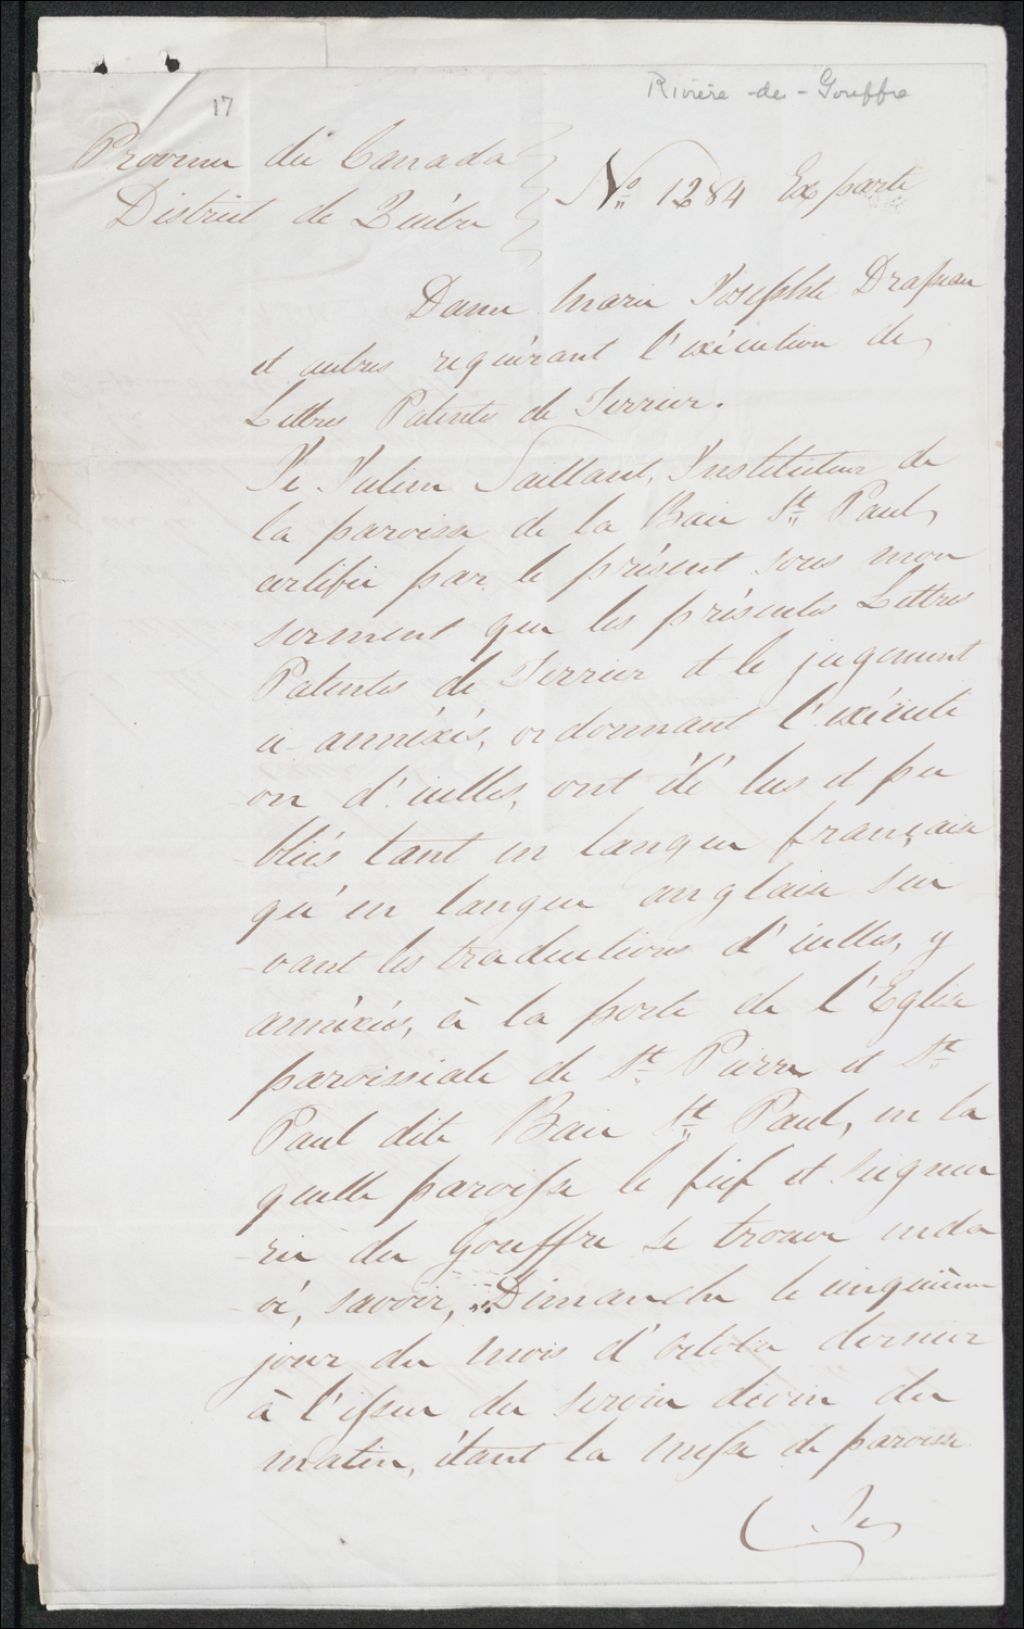 17
Rivière-de-Gouffre
Province du Canada
District de Québec
No. 1284 Ex parte
Dame Marie Josephte Drapeau
et autres requérant l'exécution de
Lettres Patentes de Terrier.
Je Julien Taillant, Instituteur de
la paroisse de la Baie St. Paul,
certifie par le présent sous mon
serment que les présentes Lettres
Patentes de Terrier et le jugement
ci-annéxés, ordonnant l'exécuti
on d'icelles, ont été lus et pu
bliés tant en langue française
qu'en langue anglaise sui
-vant les traductions d'icelles, y
annéxées, à la porte de l'Eglise
paroissiale de St. Pierre et St.
Paul dite Baie St. Paul, en la
quelle paroisse le fief et Seigneu
-rie du Gouffre se trouve encla
vé, savoir, Dimanche le cinquième
jour du mois d'octobre dernier
à l'issue du service divin du
matin, étant la messe de paroisse